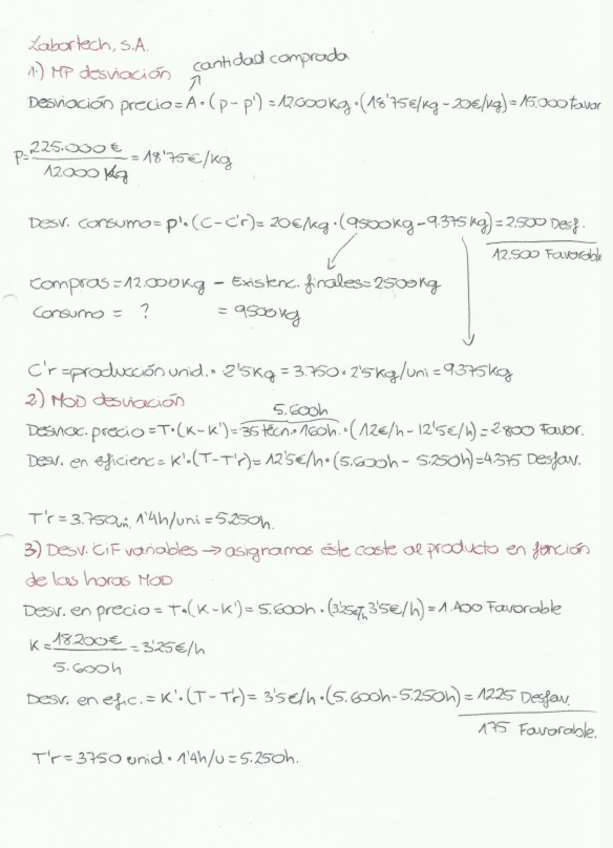 Labortech, S.A.
1) MP desviación
cantidad comprada
Desviación precio = A · (p - p') = 12.000kg · (18'75€/kg - 20€/kg) = 15.000 favor
P = 225.000€ / 12.000 kg = 18'75€/kg
Desv. consumo = p' · (C - C'r) = 20€/kg · (9500kg - 9.375kg) = 2.500 Desf.
12.500 Favorable
compras = 12.000kg - Existenc. finales = 2500kg
Consumo = ? = 9500kg
C'r = producción unid. · 2'5kg = 3.750 · 2'5kg/uni = 9375kg
2) MOD desviación
5.600h
Desviac. precio = T · (K - K') = 35 técn. · 160h. · (12€/h - 12'5€/h) = 2.800 Favor.
Desv. en eficienc = K' · (T - T'r) = 12'5€/h · (5.600h - 5.250h) = 4.375 Desfav.
T'r = 3.750 un. · 1'4h/uni = 5.250h.
3) Desv. CIF variables → asignamos éste coste al producto en función
de las horas MOD
Desv. en precio = T · (K - K') = 5.600h · (3'25€/h 3'5€/h) = 1.400 Favorable
K = 18.200€ / 5.600h = 3'25€/h
Desv. en efic. = K' · (T - T'r) = 3'5€/h · (5.600h - 5.250h) = 1225 Desfav.
175 Favorable.
T'r = 3750 unid · 1'4h/u = 5.250h.